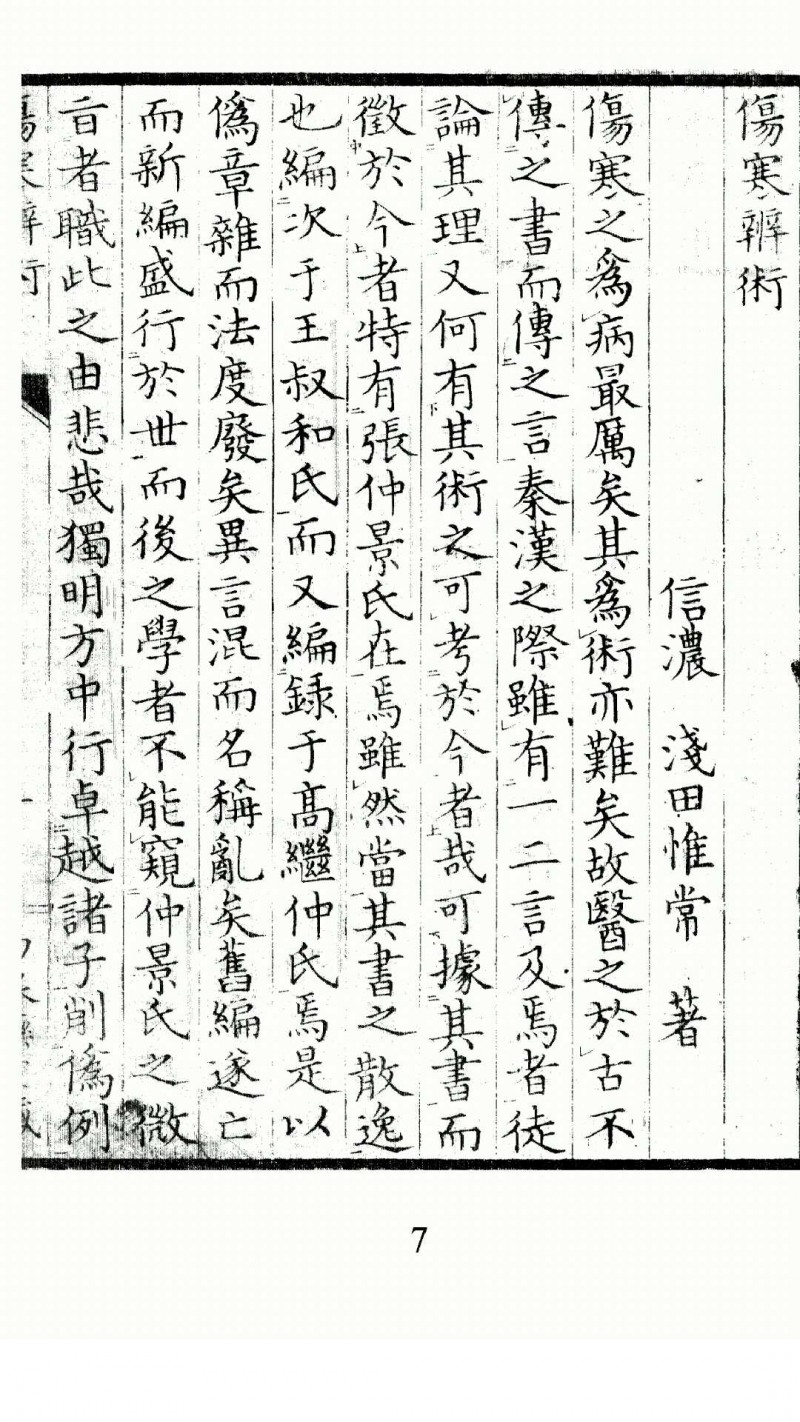 傷寒辨術
信濃 淺田惟常 著
傷寒之爲病最厲矣其爲術亦難矣故醫之於古不
傳之書而傳之言秦漢之際雖有一二言及焉者徒
論其理又何有其術之可考於今者哉可據其書而
徵於今者特有張仲景氏在焉雖然當其書之散逸
也編次于王叔和氏而又編録于高繼仲氏焉是以
僞章雜而法度廢矣異言混而名稱亂矣舊編遂亡
而新編盛行於世而後之學者不能窺仲景氏之微
㫖者職此之由悲哉獨明方中行卓越諸子削僞例
傷寒辨術
7